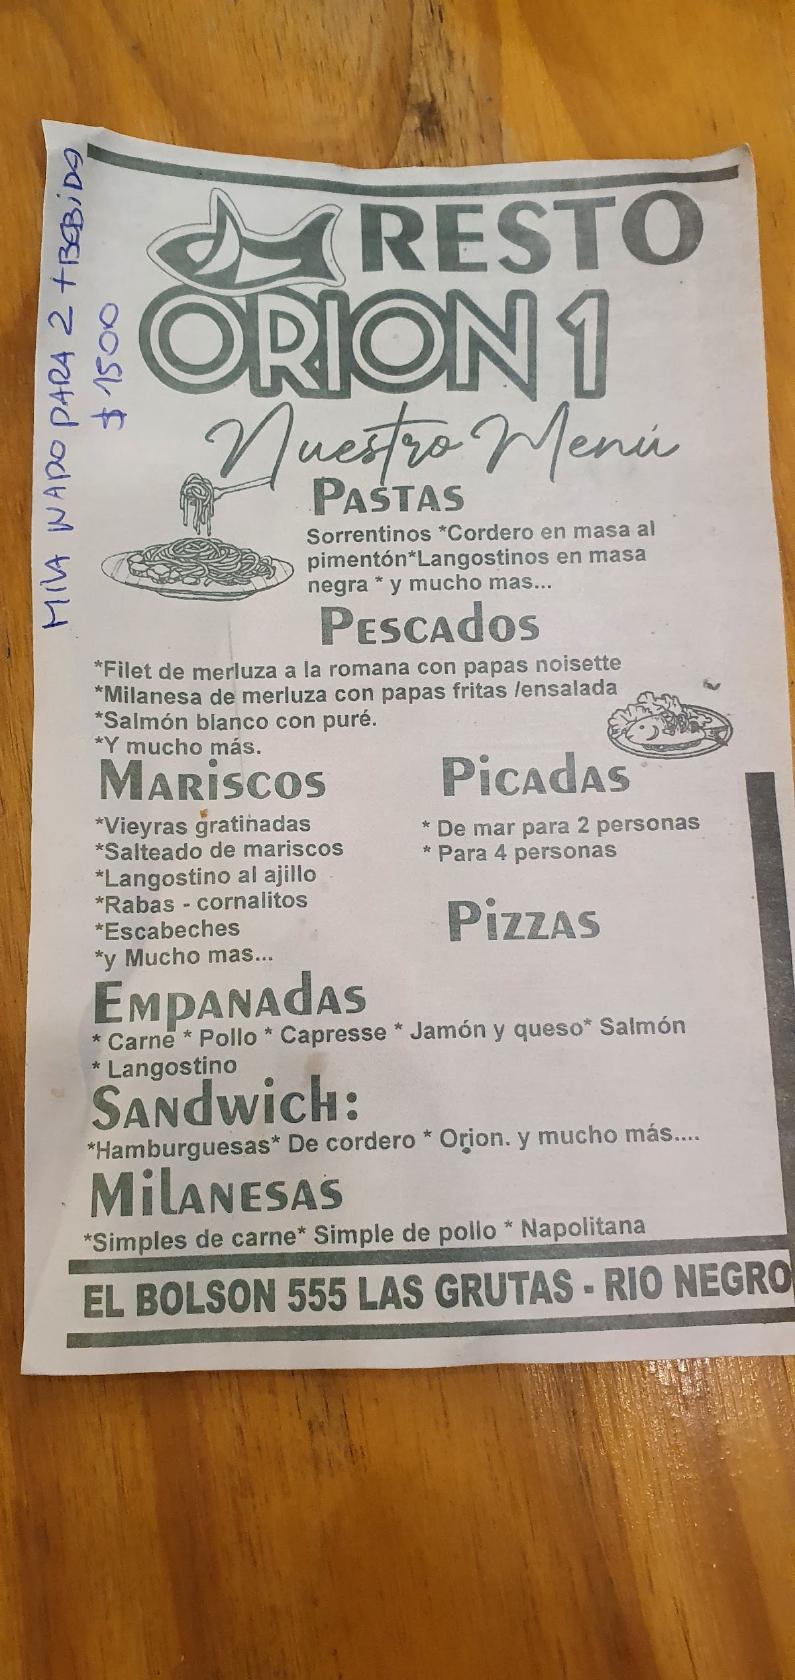 MILA NAPO PARA 2 + BEBIDA
$ 1500
RESTO
ORION 1
Nuestro Menú
PASTAS
Sorrentinos *Cordero en masa al
pimentón*Langostinos en masa
negra * y mucho mas...
PESCAdOS
*Filet de merluza a la romana con papas noisette
*Milanesa de merluza con papas fritas /ensalada
*Salmón blanco con puré.
*Y mucho más.
MARiSCOS
*Vieyras gratinadas
*Salteado de mariscos
*Langostino al ajillo
*Rabas - cornalitos
*Escabeches
*y Mucho mas...
PiCAdAS
* De mar para 2 personas
* Para 4 personas
PiZZAS
EMPANAdAS
* Carne * Pollo * Capresse * Jamón y queso* Salmón
* Langostino
SANdwich:
*Hamburguesas* De cordero * Orion. y mucho más....
MiLANESAS
*Simples de carne* Simple de pollo * Napolitana
EL BOLSON 555 LAS GRUTAS - RIO NEGRO